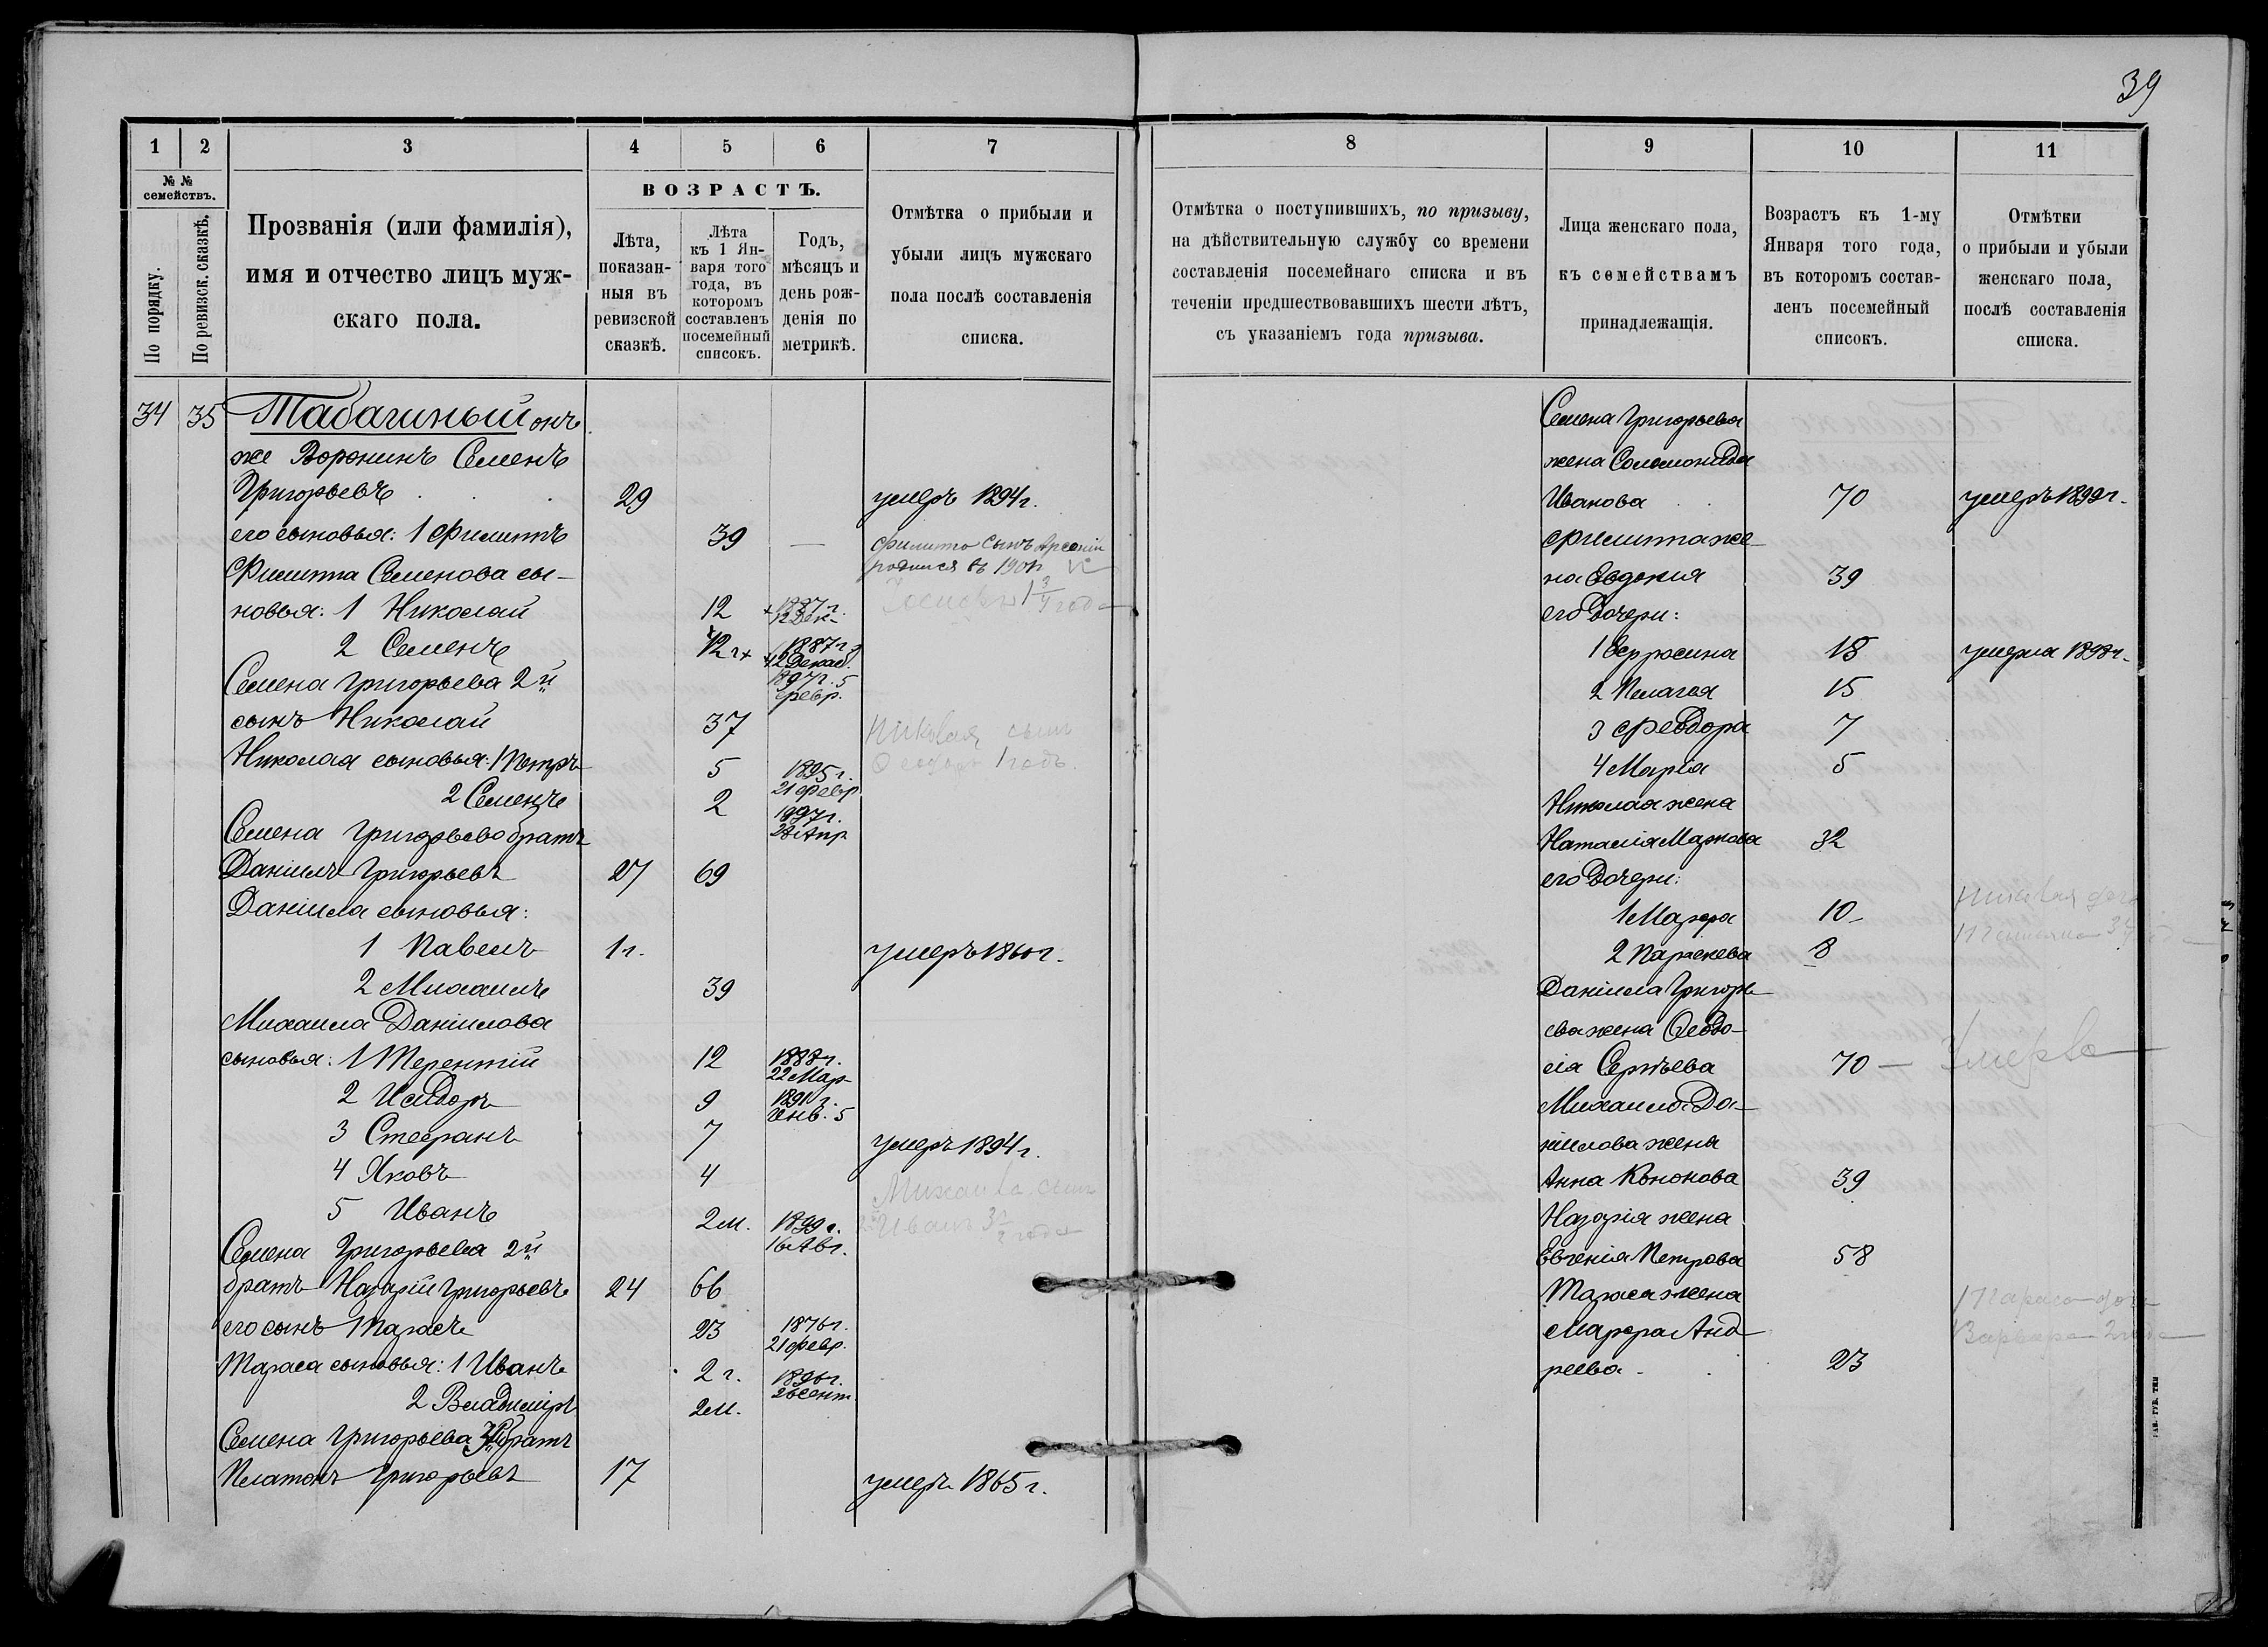 39
1 2 3 4 5 6 7
№ № семействъ.
По порядку.
По ревизск. сказкѣ.
Прозванія (или фамилія),
имя и отчество лицъ муж-
скаго пола.
ВОЗРАСТЪ.
Лѣта,
показан-
ныя въ
ревизской
сказкѣ.
Лѣта
къ 1 Ян-
варя того
года, въ
которомъ
составленъ
посемейный
списокъ.
Годъ,
мѣсяцъ и
день рож-
денія по
метрикѣ.
Отмѣтка о прибыли и
убыли лицъ мужскаго
пола послѣ составленія
списка.
34 35 Табачный онъ
же Воронинъ Семенъ
Григорьевъ 29 умеръ 1894 г.
его сыновья: 1 Филиппъ 39 — Филиппа сынъ Арсеній
родился въ 190
Филиппа Семенова сы-
новья: 1 Николай 12 1887 г.
12 Дек.
2 Семенъ 1887 г.
12 Декаб.
1897 г. 5
Февр.
Семена Григорьева 2й
сынъ Николай 37 Николая сынъ
Николая сыновья: 1 Петръ 5 1895 г.
21 Февр.
1 годъ.
2 Семенъ 2 1897 г.
28 Апр.
Семена Григорьева братъ
Даніилъ Григорьевъ 27 69
Даніила сыновья:
1 Павелъ 1 г. умеръ 1860 г.
2 Михаилъ 39
Михаила Даніилова
сыновья: 1 Терентій 12 1888 г.
22 Мар.
2 Исидоръ 9 1891 г.
Янв. 5
3 Стефанъ 7 умеръ 1894 г.
4 Яковъ 4 Михаила сынъ
5 Иванъ 2 м. 1899 г.
16 Авг.
Иванъ 3 года
Семена Григорьева 2й
братъ Назарій Григорьевъ 24 66
его сынъ Тарасъ 23 1876 г.
21 Февр.
Тараса сыновья: 1 Иванъ 2 г. 1896 г.
26 Сент.
2 Владиміръ 2 м.
Семена Григорьева 3й братъ
Платонъ Григорьевъ 17 умеръ 1865 г.
8 9 10 11
Отмѣтка о поступившихъ, по призыву,
на дѣйствительную службу со времени
составленія посемейнаго списка и въ
теченіи предшествовавшихъ шести лѣтъ,
съ указаніемъ года призыва.
Лица женскаго пола,
къ семействамъ
принадлежащія.
Возрастъ къ 1-му
Января того года,
въ которомъ состав-
ленъ посемейный
списокъ.
Отмѣтки
о прибыли и убыли
женскаго пола,
послѣ составленія
списка.
Семена Григорьева
жена Соломонида
Иванова 70 умеръ 1892 г.
Филиппа же-
на Евдокия 39
его дочери:
1 Ефросина 18 умерла 1898 г.
2 Пелагея 15
3 Февдора 7
4 Марія 5
Николая жена
Наталія Маркова 32
его дочери:
1 Марфа 10 Николая доч
2 Параскева 8
Даніила Григорь-
ева жена Феодо-
сія Сергѣева 70 — Умерла
Михаила Да-
ніилова жена
Анна Кононова 39
Назарія жена
Евгенія Петрова 58
Тараса жена Тараса доч
Марфа Анд- Варвара 2 года
реева 23